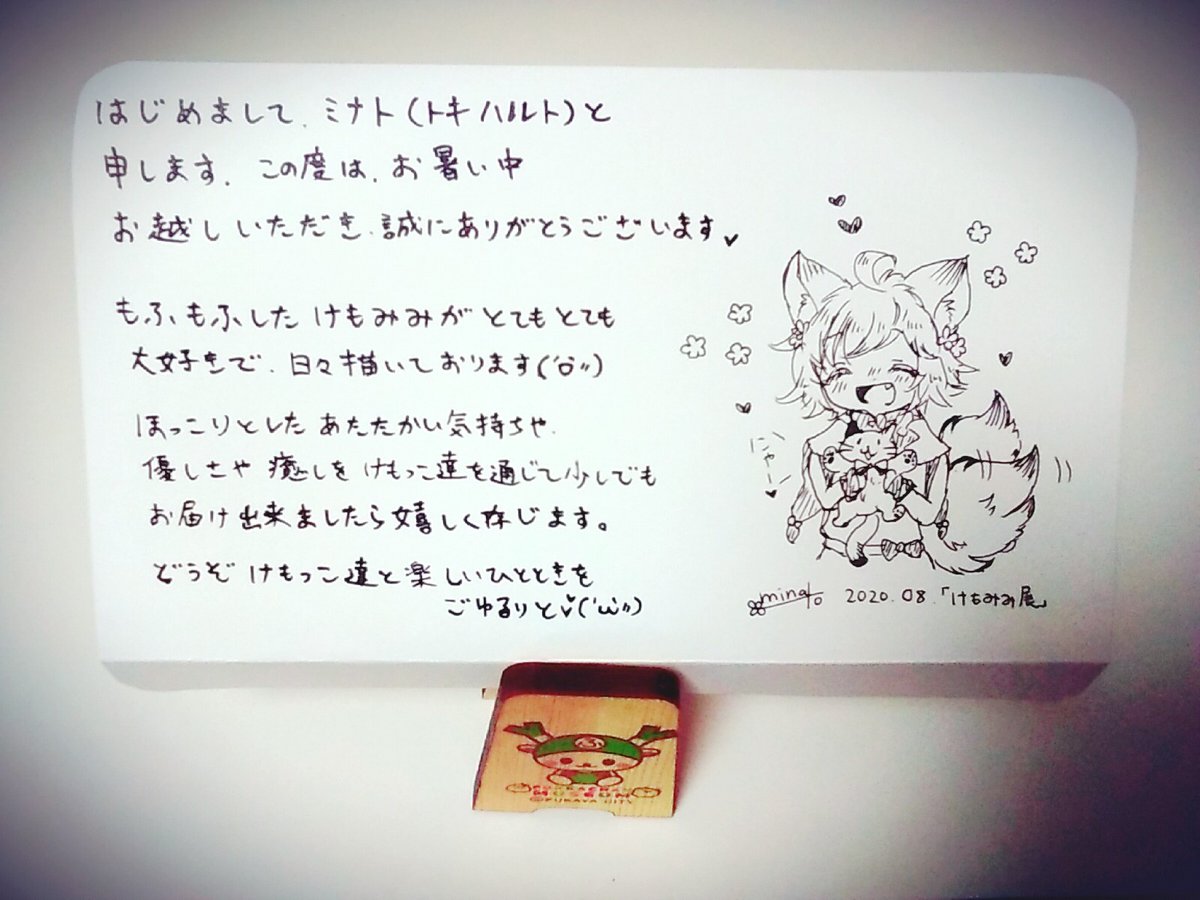 はじめまして、ミナト(トキハルト)と
申します。この度は、お暑い中
お越しいただき、誠にありがとうございます♥
もふもふしたけもみみがとてもとても
大好きで、日々描いております(
ほっこりとしたあたたかい気持ちや、
優しさや癒しをけもっこ達を通じて少しでも
お届け出来ましたら嬉しく存じます。
どうぞけもっこ達と楽しいひとときを
ごゆるりと♥('ω'〃)
にゃー♥
minato 2020.08.「けもみみ展」
ふ
MUSEUM
©FUKAYA CITY